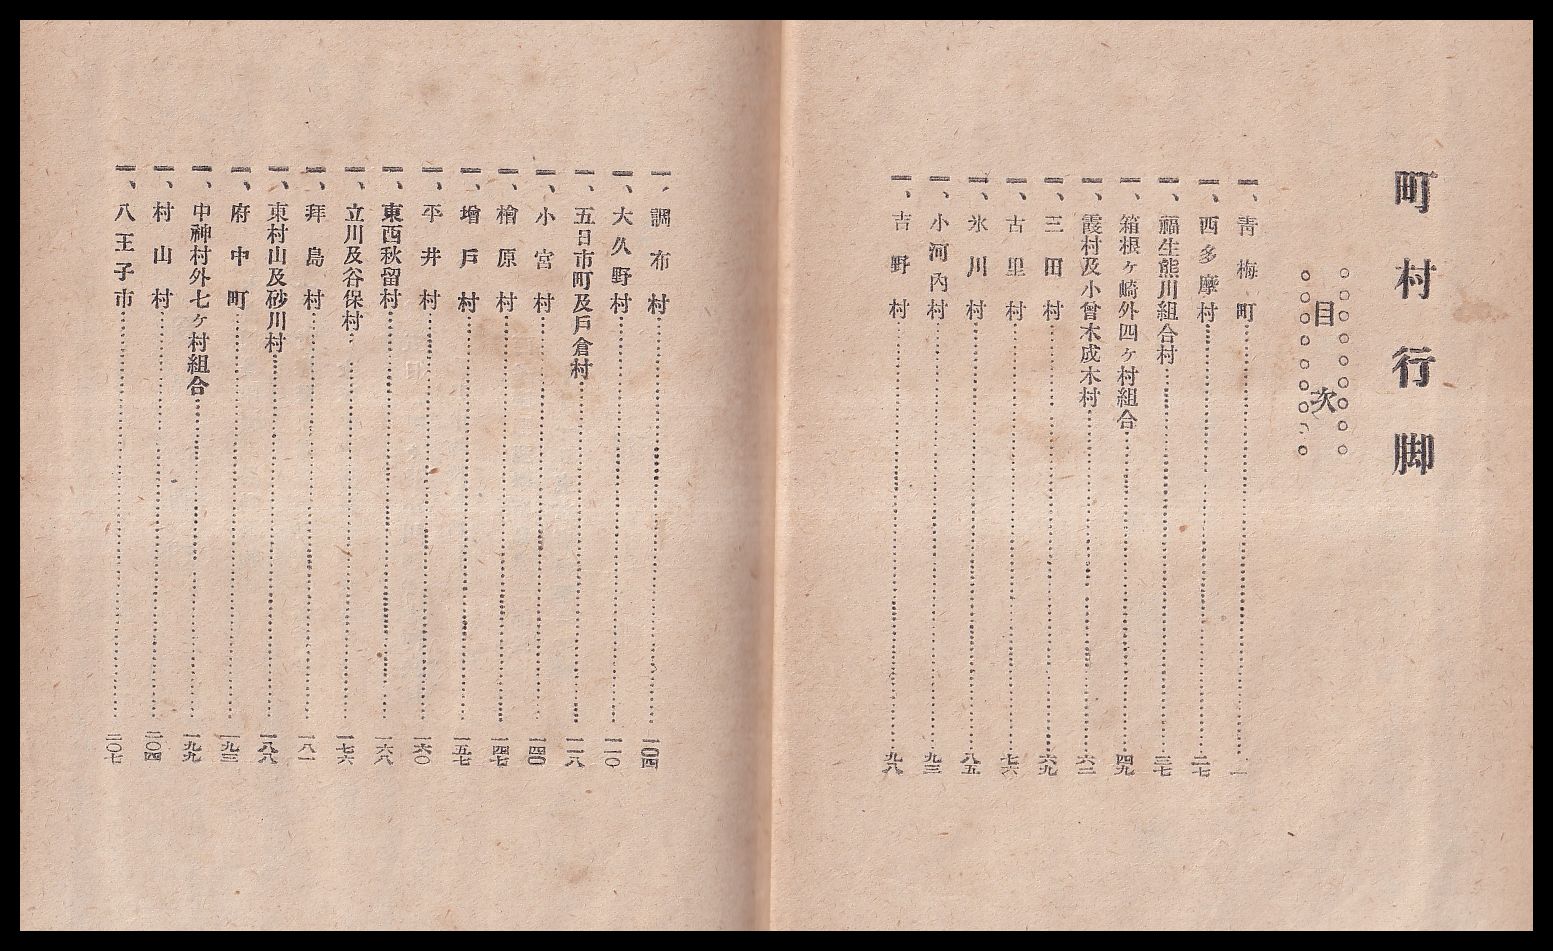 町村行脚
目次
一、靑梅町…………一
一、西多摩村…………二七
一、福生熊川組合村…………三七
一、箱根ヶ崎外四ヶ村組合…………四九
一、霞村及小曾木成木村…………六二
一、三田村…………六九
一、古里村…………七六
一、氷川村…………八五
一、小河內村…………九三
一、吉野村…………九八
一、調布村…………一〇四
一、大久野村…………一一〇
一、五日市町及戶倉村…………一一八
一、小宮村…………一四〇
一、檜原村…………一四七
一、增戶村…………一五七
一、平井村…………一六〇
一、東西秋留村…………一六八
一、立川及谷保村…………一七六
一、拜島村…………一八一
一、東村山及砂川村…………一八八
一、府中町…………一九三
一、中神村外七ヶ村組合…………一九九
一、村山村…………二〇四
一、八王子市…………二〇七